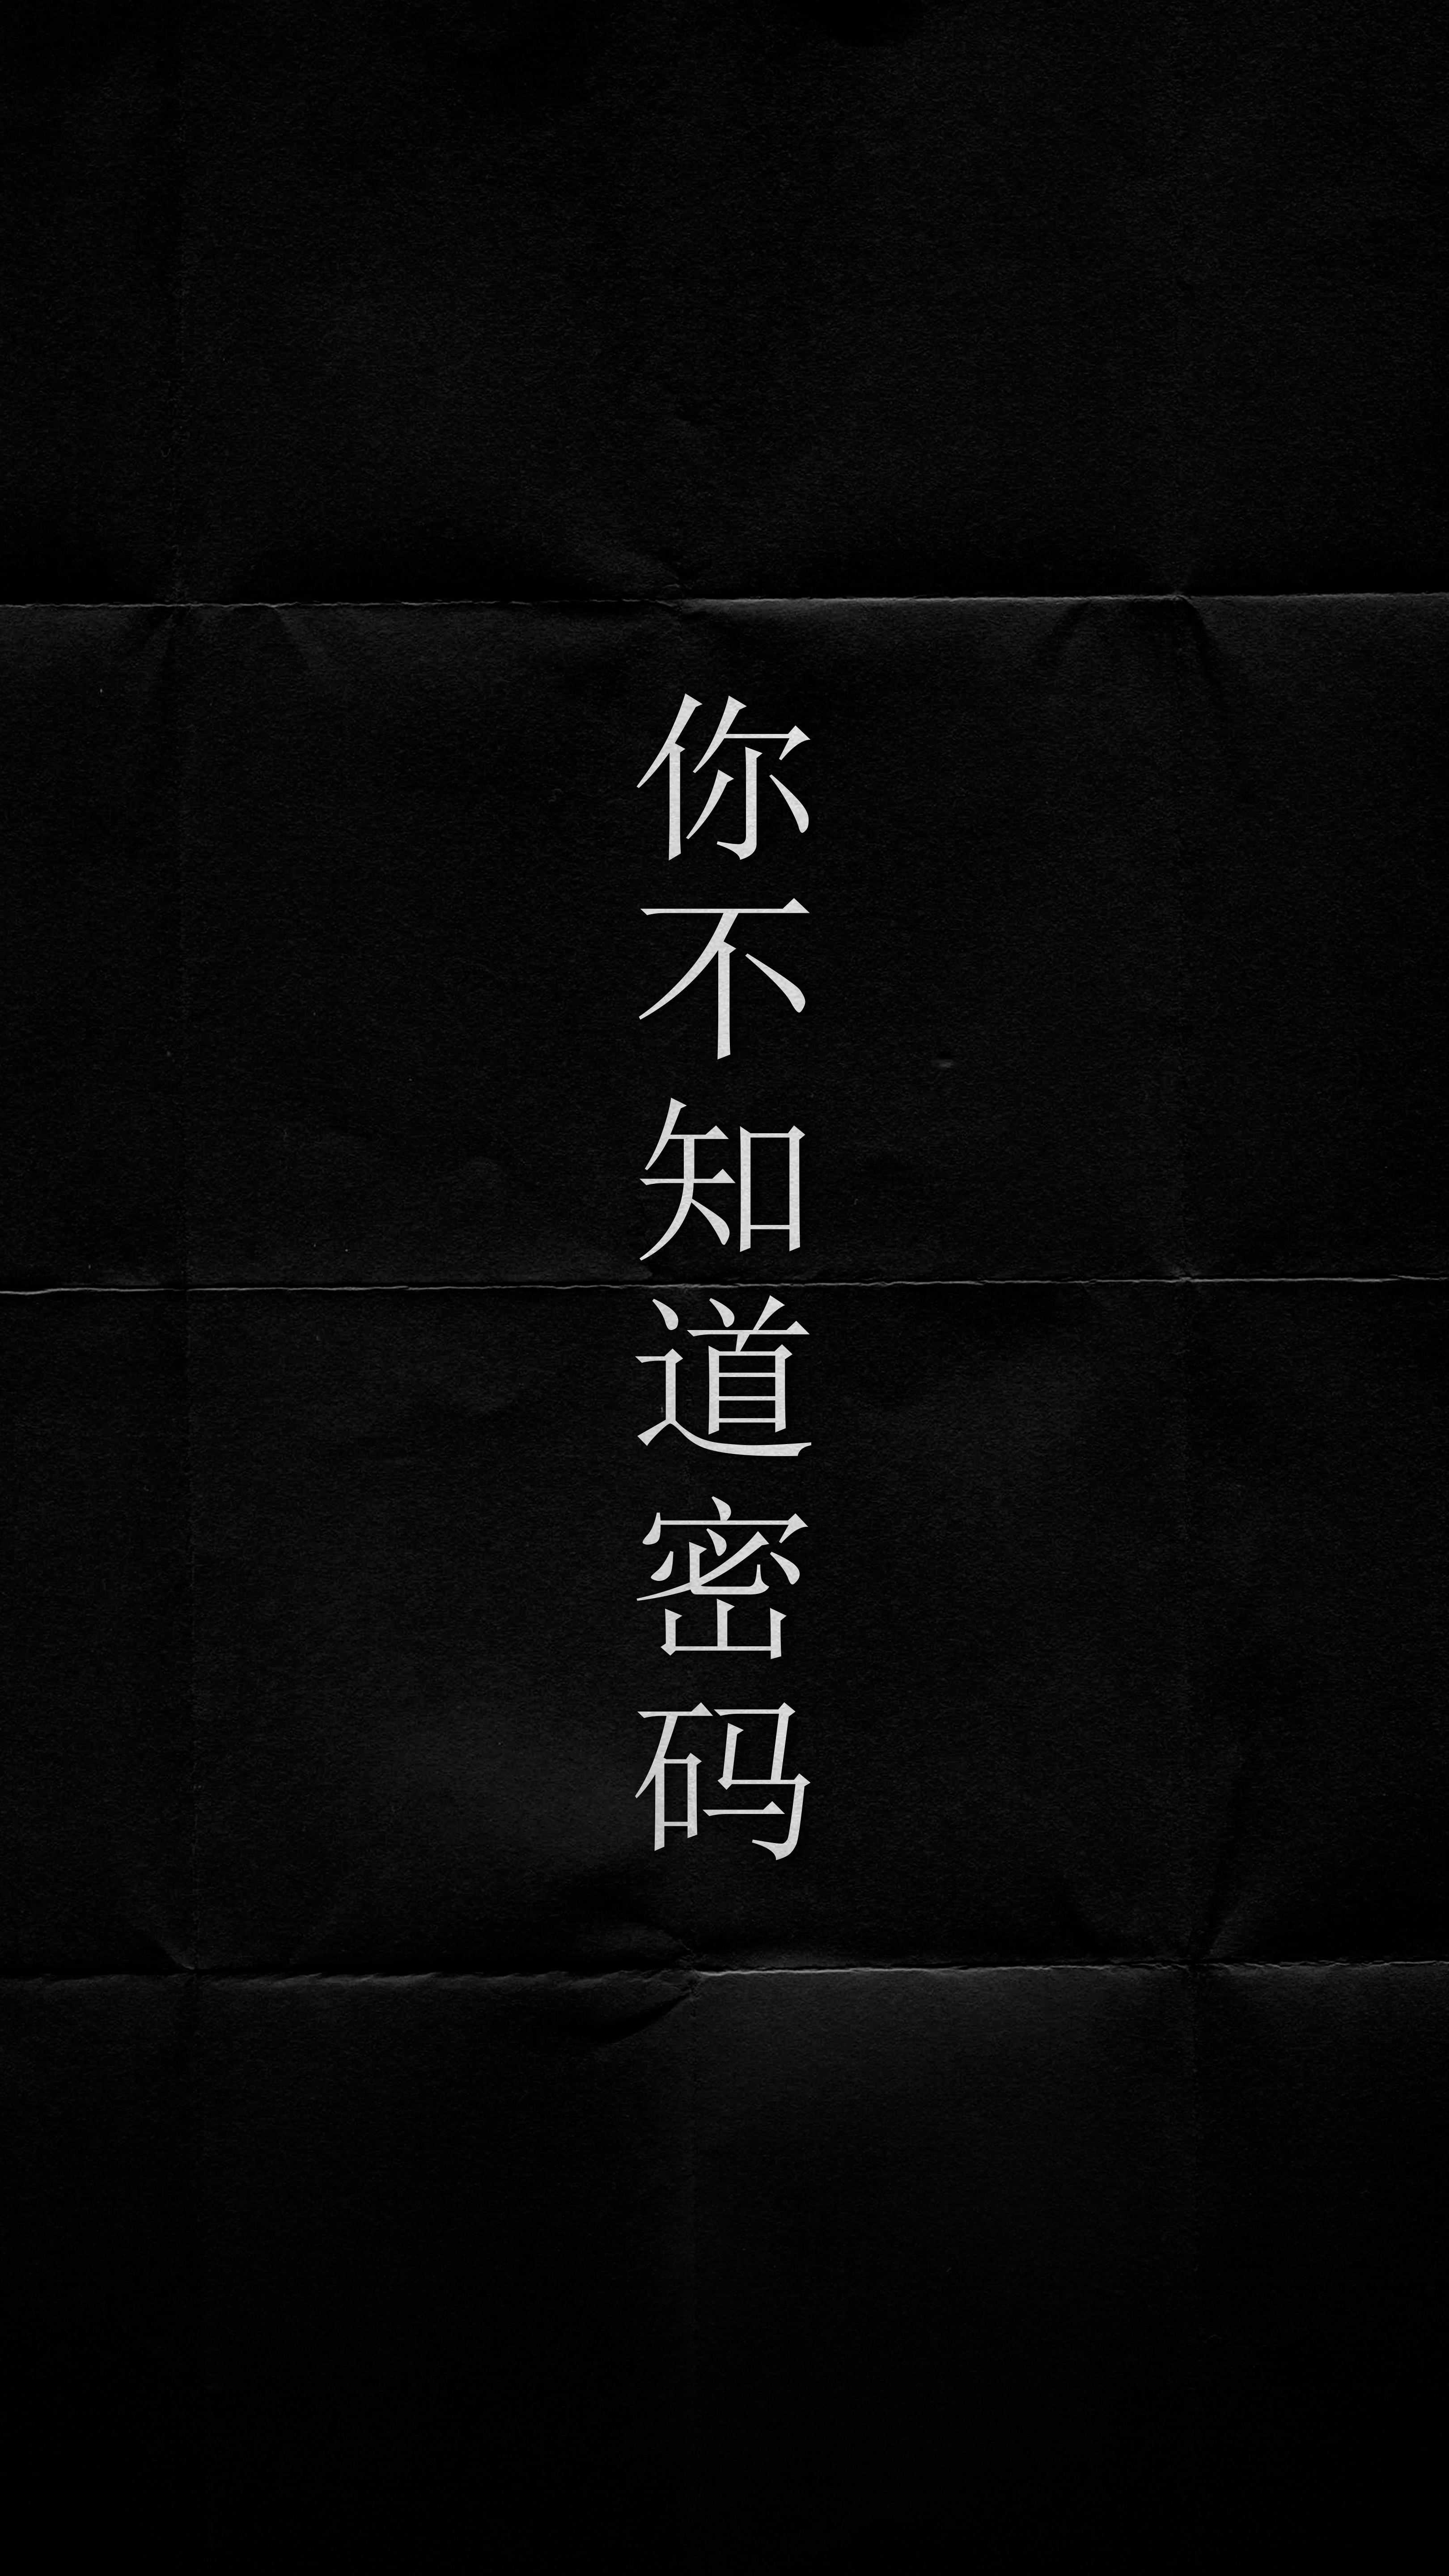 你不知道密码